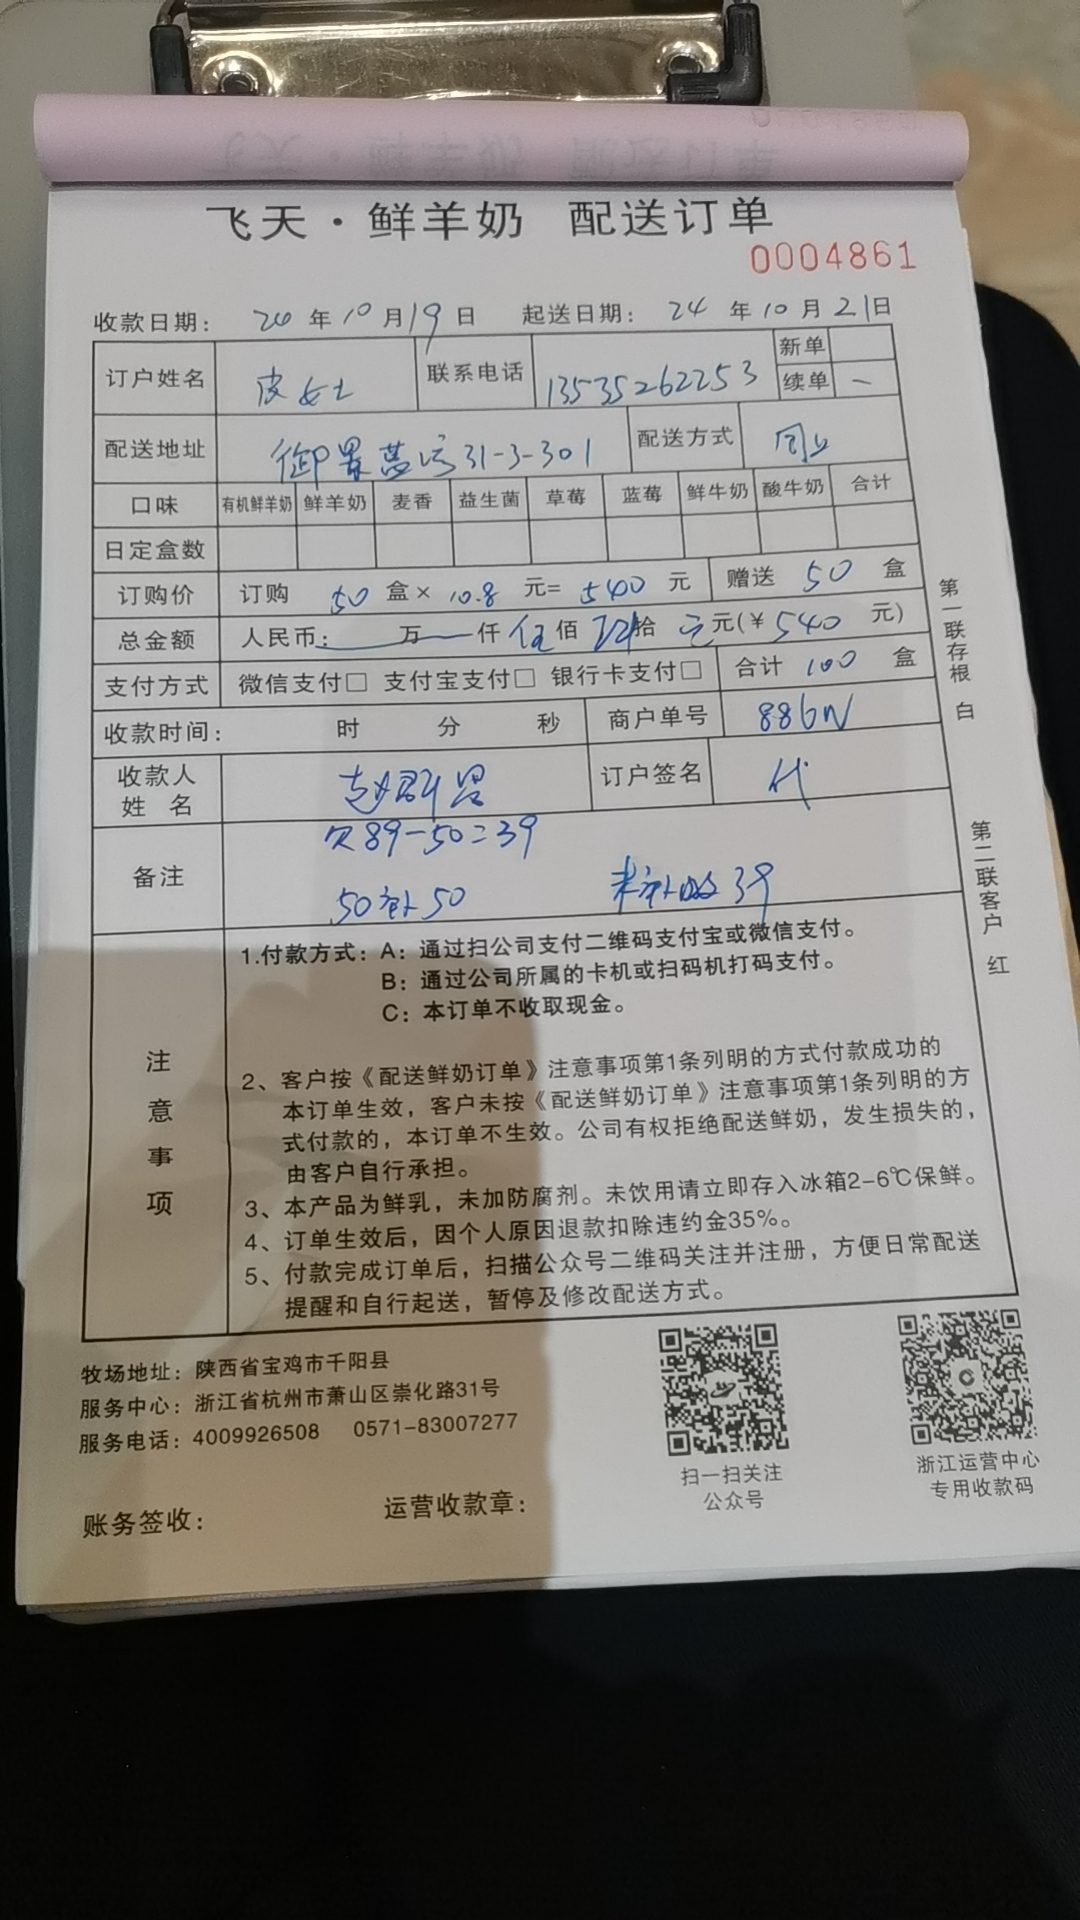 飞天·鲜羊奶 配送订单
0004861
收款日期: 24 年 10 月 19 日 起送日期: 24 年 10 月 21 日
订户姓名 皮女士 联系电话 13535262253 新单
续单 一
配送地址 御景蓝湾31-3-301 配送方式 同上
口味 有机鲜羊奶 鲜羊奶 麦香 益生菌 草莓 蓝莓 鲜牛奶 酸牛奶 合计
日定盒数
订购价 订购 50 盒× 10.8 元= 540 元 赠送 50 盒
总金额 人民币: 万 仟 伍 佰 肆 拾 元(¥ 540 元)
支付方式 微信支付□ 支付宝支付□ 银行卡支付□ 合计 100 盒
收款时间: 时 分 秒 商户单号 886W
收款人
姓 名 赵 订户签名 代
备注 欠89-50=39
50补50 未补收39
注意事项
1.付款方式: A: 通过扫公司支付二维码支付宝或微信支付。
B: 通过公司所属的卡机或扫码机打码支付。
C: 本订单不收取现金。
2、客户按《配送鲜奶订单》注意事项第1条列明的方式付款成功的
本订单生效,客户未按《配送鲜奶订单》注意事项第1条列明的方
式付款的,本订单不生效。公司有权拒绝配送鲜奶,发生损失的,
由客户自行承担。
3、本产品为鲜乳,未加防腐剂。未饮用请立即存入冰箱2-6℃保鲜。
4、订单生效后,因个人原因退款扣除违约金35%。
5、付款完成订单后,扫描公众号二维码关注并注册,方便日常配送
提醒和自行起送,暂停及修改配送方式。
第一联存根 白
第二联客户 红
牧场地址: 陕西省宝鸡市千阳县
服务中心: 浙江省杭州市萧山区崇化路31号
服务电话: 4009926508 0571-83007277
扫一扫关注
公众号
浙江运营中心
专用收款码
账务签收: 运营收款章: